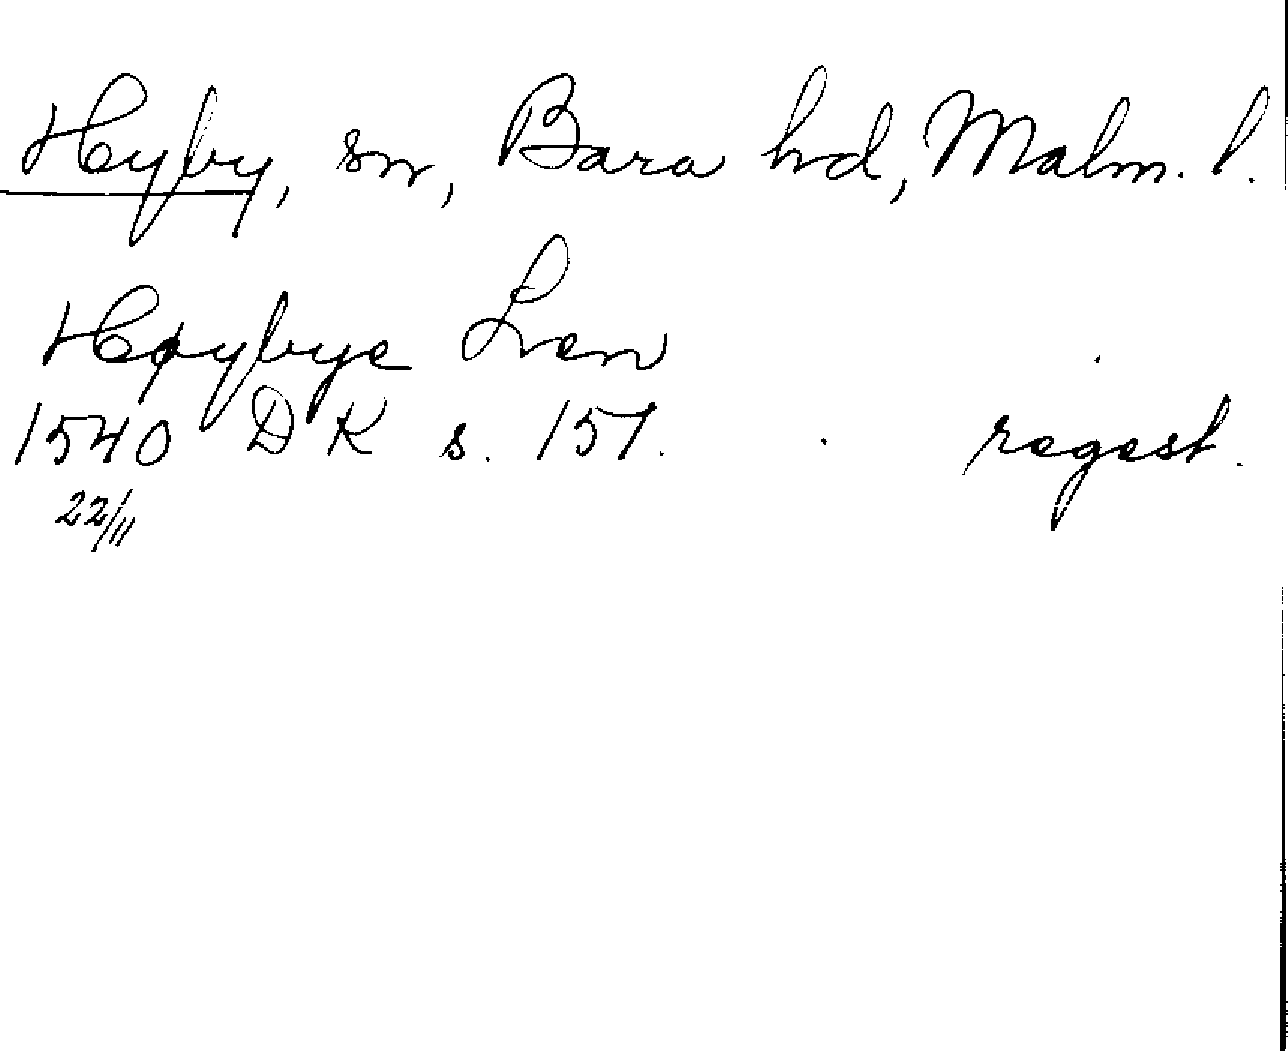 Hyby, sn, Bara hd, Malm. l.
Høybye Lren
1540 DK s. 157. regest.
22/11